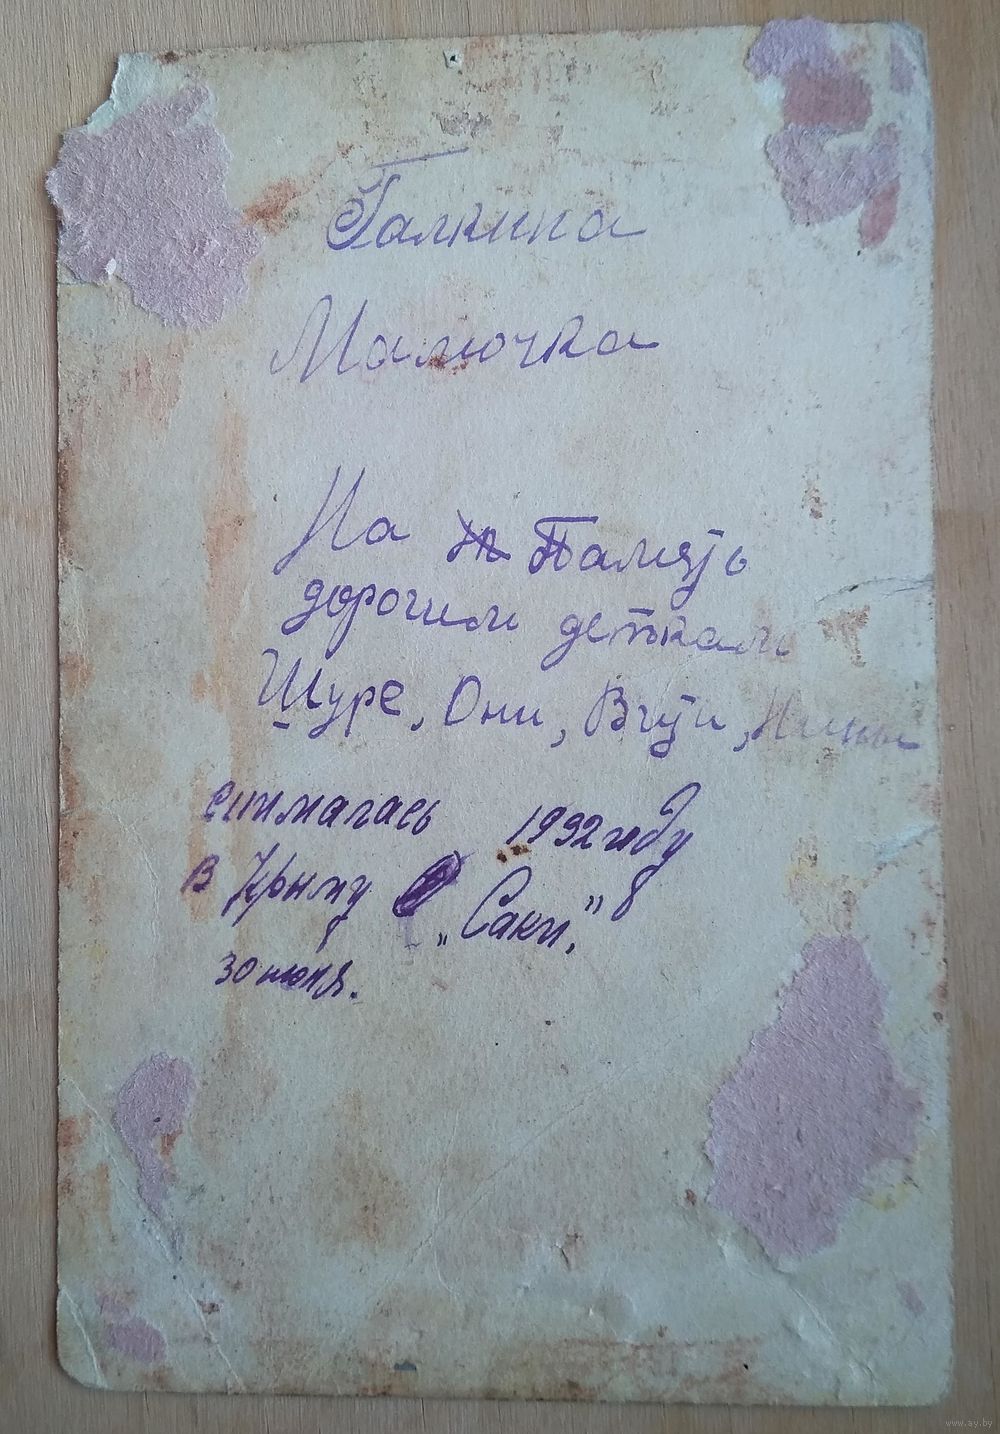 Галкина
Малючка
На Память
дорогим деткам
Шуре, Они, Вити, Нины
снималась 1932 году
в Крыму „Саки,” в
30 июля.
www.ay.by